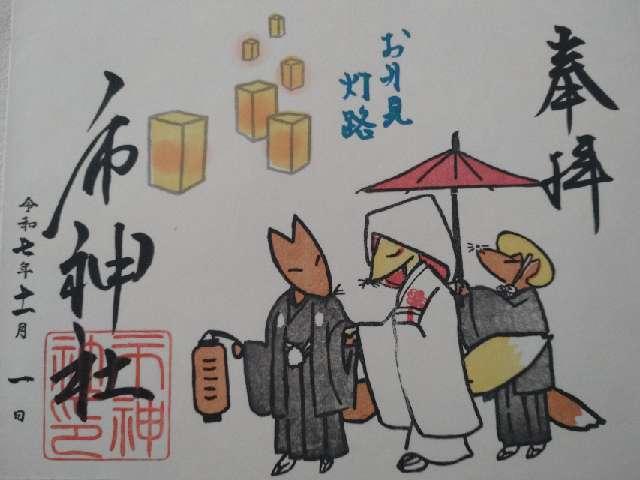 奉拝
お月見
灯路
市神社
令和七年十一月一日
市神社印